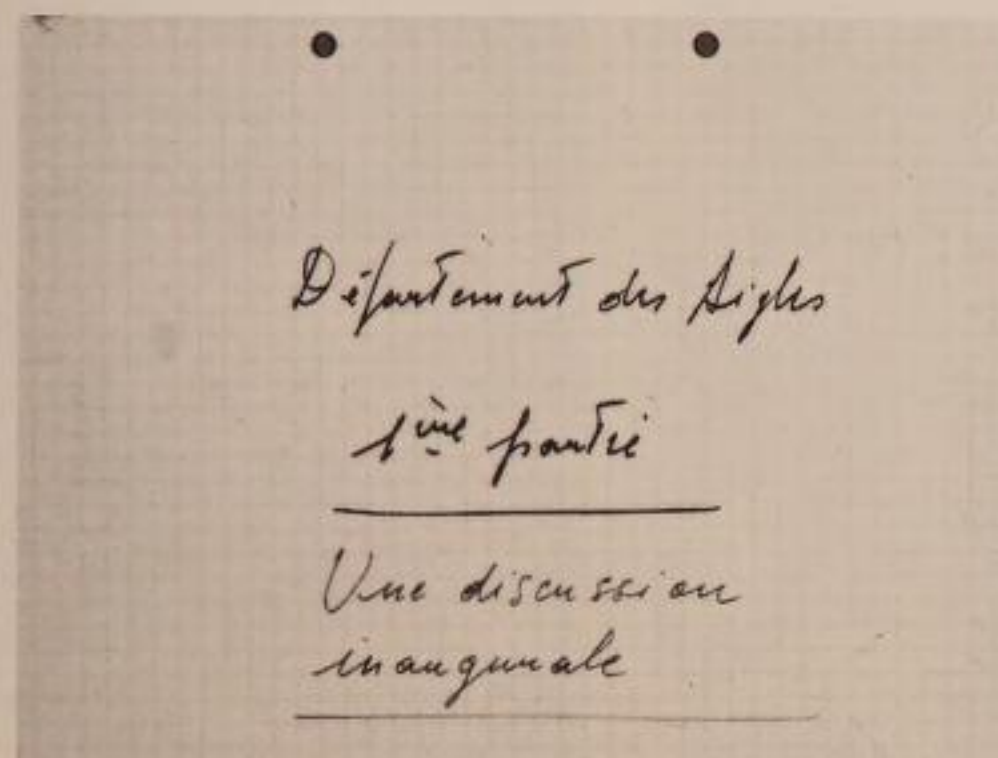 Département des Aigles
1ème partie
Une discussion
inaugurale